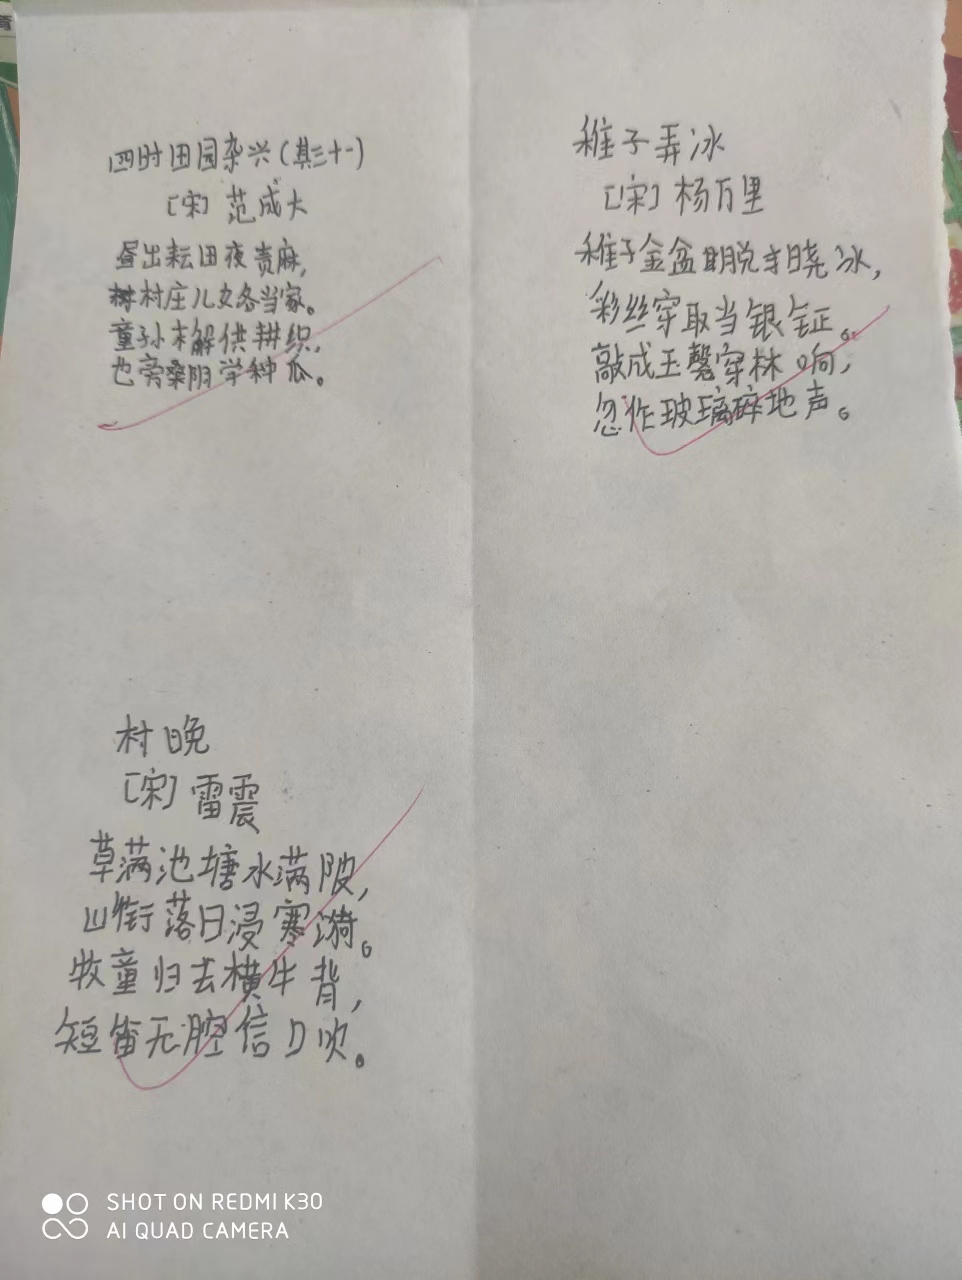 四时田园杂兴(其三十一)
[宋] 范成大
昼出耘田夜责麻,
村庄儿女各当家。
童孙未解供耕织,
也旁桑阴学种瓜。
稚子弄冰
[宋] 杨万里
稚子金盆脱晓冰,
彩丝穿取当银钲。
敲成玉磬穿林响,
忽作玻璃碎地声。
村晚
[宋] 雷震
草满池塘水满陂,
山衔落日浸寒漪。
牧童归去横牛背,
短笛无腔信口吹。
SHOT ON REDMI K30
AI QUAD CAMERA